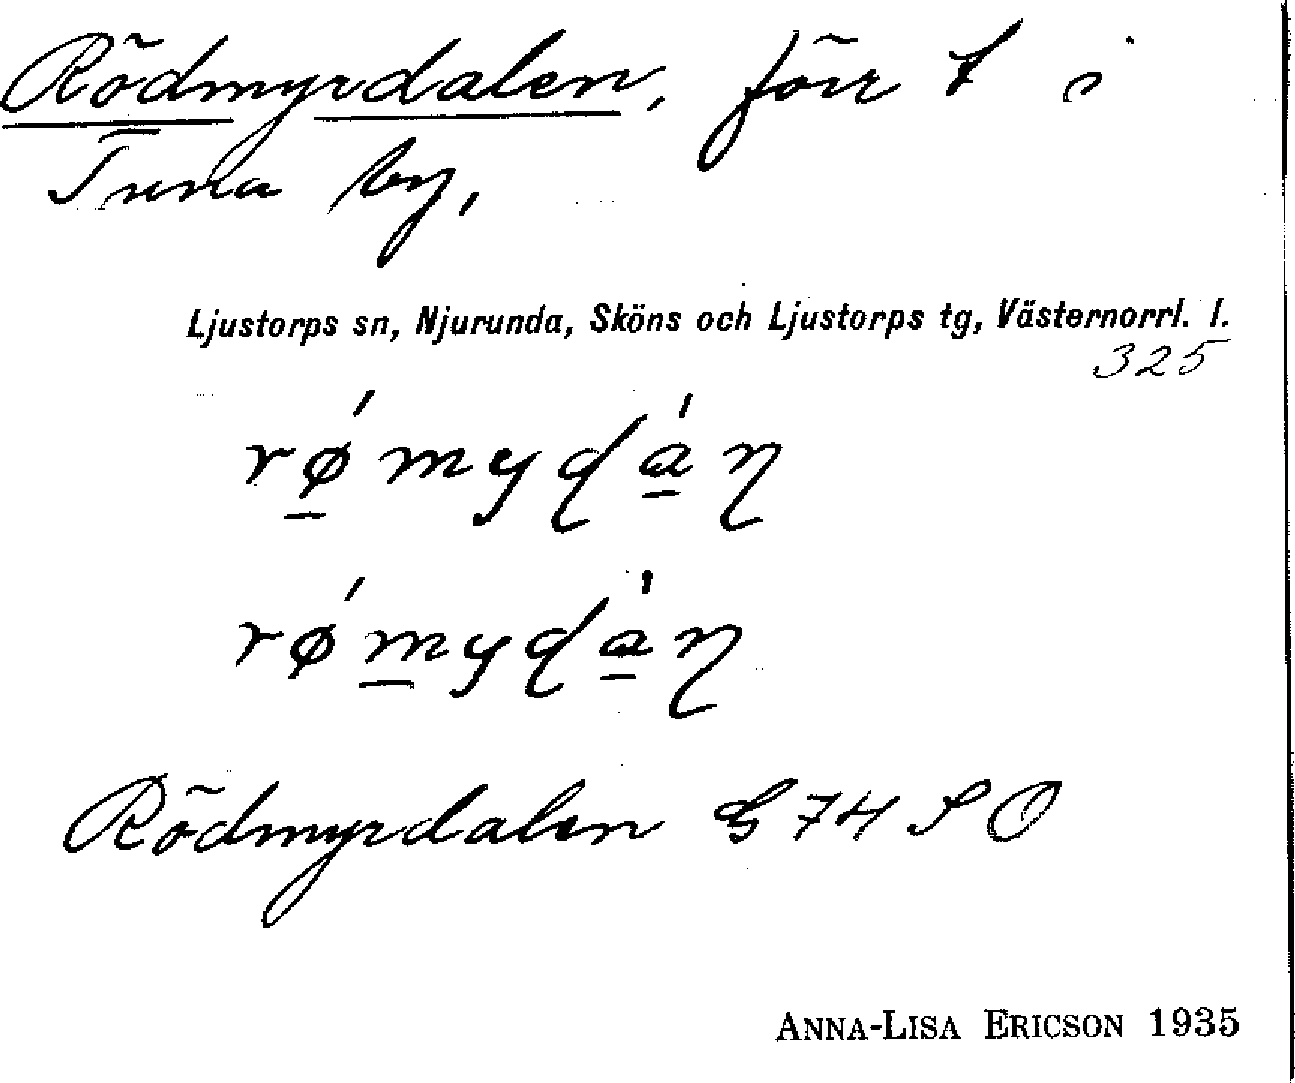 Rödmyrdalen, förr t i
Tuna by,
Ljustorps sn, Njurunda, Sköns och Ljustorps tg, Västernorrl. l.
325
rǿ̱mydá̱ŋ
røḿ̱ydá̱ŋ
Rödmyrdalen G 74 S O
ANNA-LISA ERICSON 1935